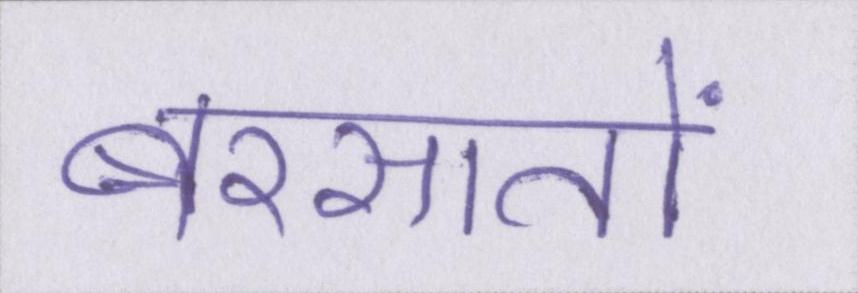 बरसातों